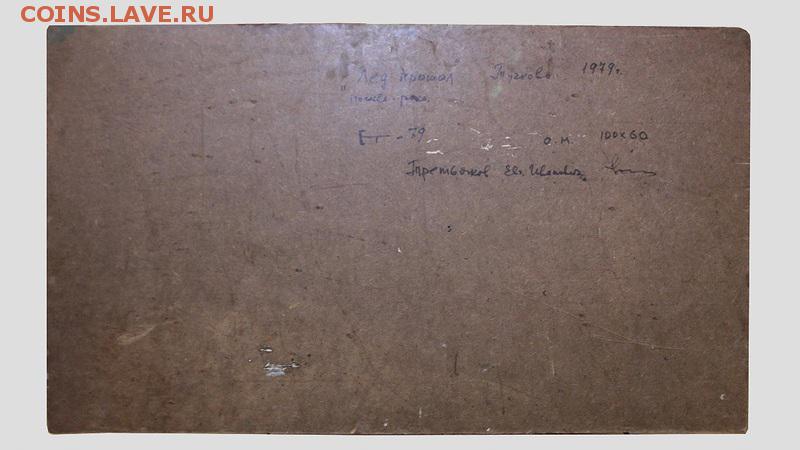 COINS.LAVE.RU
"Лед прошел Тучково. 1979г.
ЕТ-79 о.м. 100х60
Третьяков Евг. Иванович